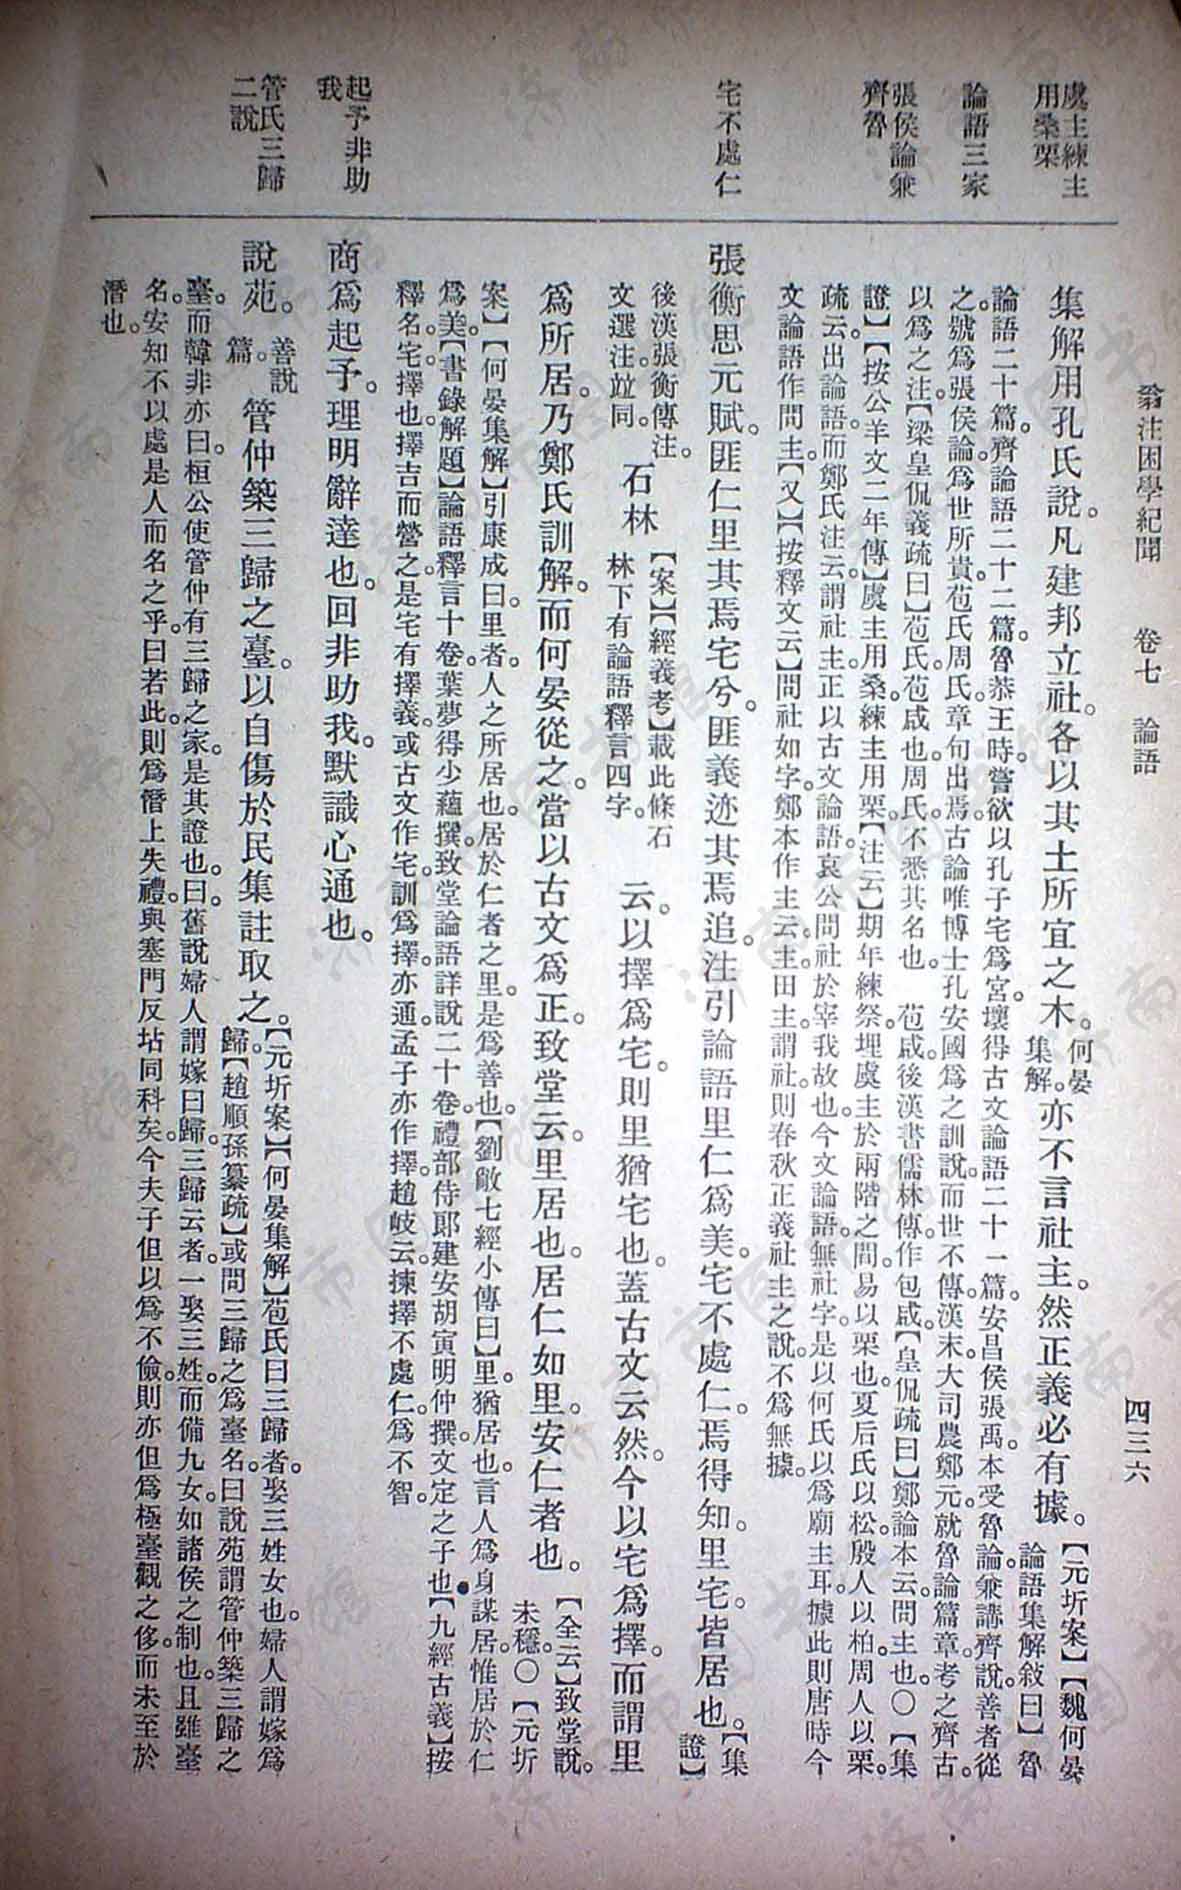 翁注困學紀聞　卷七　論語　四三六
虞主練主
用桑栗
論語三家
張侯論兼
齊魯
宅不處仁
起予非助
我
管氏三歸
二說
集解用孔氏說。凡建邦立社。各以其土所宜之木。何晏集解。亦不言社主。然正義必有據。【元圻案】【魏何晏
論語集解敍曰】魯
論語二十篇。齊論語二十二篇。魯恭王時。嘗欲以孔子宅爲宮。壞得古文論語二十一篇。安昌侯張禹。本受魯論。兼講齊說。善者從
之。號爲張侯論。爲世所貴。苞氏周氏。章句出焉。古論唯博士孔安國爲之訓說。而世不傳。漢末。大司農鄭元。就魯論篇章。考之齊古。
以爲之注。【梁皇侃義疏曰】苞氏。苞咸也。周氏。不悉其名也。　苞咸。後漢書儒林傳。作包咸。【皇侃疏曰】鄭論本云。問主也。〇【集
證】【按公羊文二年傳】虞主用桑。練主用栗。【注云】期年練祭。埋虞主於兩階之間。易以栗也。夏后氏以松。殷人以柏。周人以栗。
疏云。出論語。而鄭氏注云。謂社主。正以古文論語。哀公問社於宰我故也。今文論語。無社字。是以何氏以爲廟主耳。據此則唐時今
文論語作問主。【又】【按釋文云】問社如字。鄭本作主。云。主。田主。謂社。則春秋正義社主之說。不爲無據。
張衡思元賦。匪仁里其焉宅兮。匪義迹其焉追。注引論語里仁爲美。宅不處仁。焉得知。里宅皆居也。【集
證】
後漢張衡傳注。
文選注竝同。石林【案】【經義考】載此條石
林下有論語釋言四字。云。以擇爲宅。則里猶宅也。蓋古文云然。今以宅爲擇。而謂里
爲所居。乃鄭氏訓解。而何晏從之。當以古文爲正。致堂云。里居也。居仁如里。安仁者也。【全云】致堂說。
未穩。〇【元圻
案】【何晏集解】引康成曰。里者。人之所居也。居於仁者之里。是爲善也。【劉敞七經小傳曰】里。猶居也。言人爲身謀居。惟居於仁
爲美。【書錄解題】論語釋言十卷。葉夢得少蘊撰。致堂論語詳說二十卷。禮部侍郎建安胡寅明仲撰。文定之子也。【九經古義】按
釋名。宅。擇也。擇吉而營之。是宅有擇義。或古文作宅。訓爲擇。亦通。孟子亦作擇。趙岐云。揀擇不處仁。爲不智。
商爲起予。理明辭達也。回非助我。默識心通也。
說苑。善說
篇。管仲築三歸之臺。以自傷於民。集註取之。【元圻案】【何晏集解】苞氏曰。三歸者。娶三姓女也。婦人謂嫁爲
歸。【趙順孫纂疏】或問三歸之爲臺名。曰。說苑謂管仲築三歸之
臺。而韓非亦曰。桓公使管仲有三歸之家。是其證也。曰。舊說婦人謂嫁曰歸。三歸云者。一娶三姓。而備九女。如諸侯之制也。且雖臺
名。安知不以處是人而名之乎。曰。若此。則爲僭上失禮。與塞門反坫同科矣。今夫子但以爲不儉。則亦但爲極臺觀之侈。而未至於
僭也。